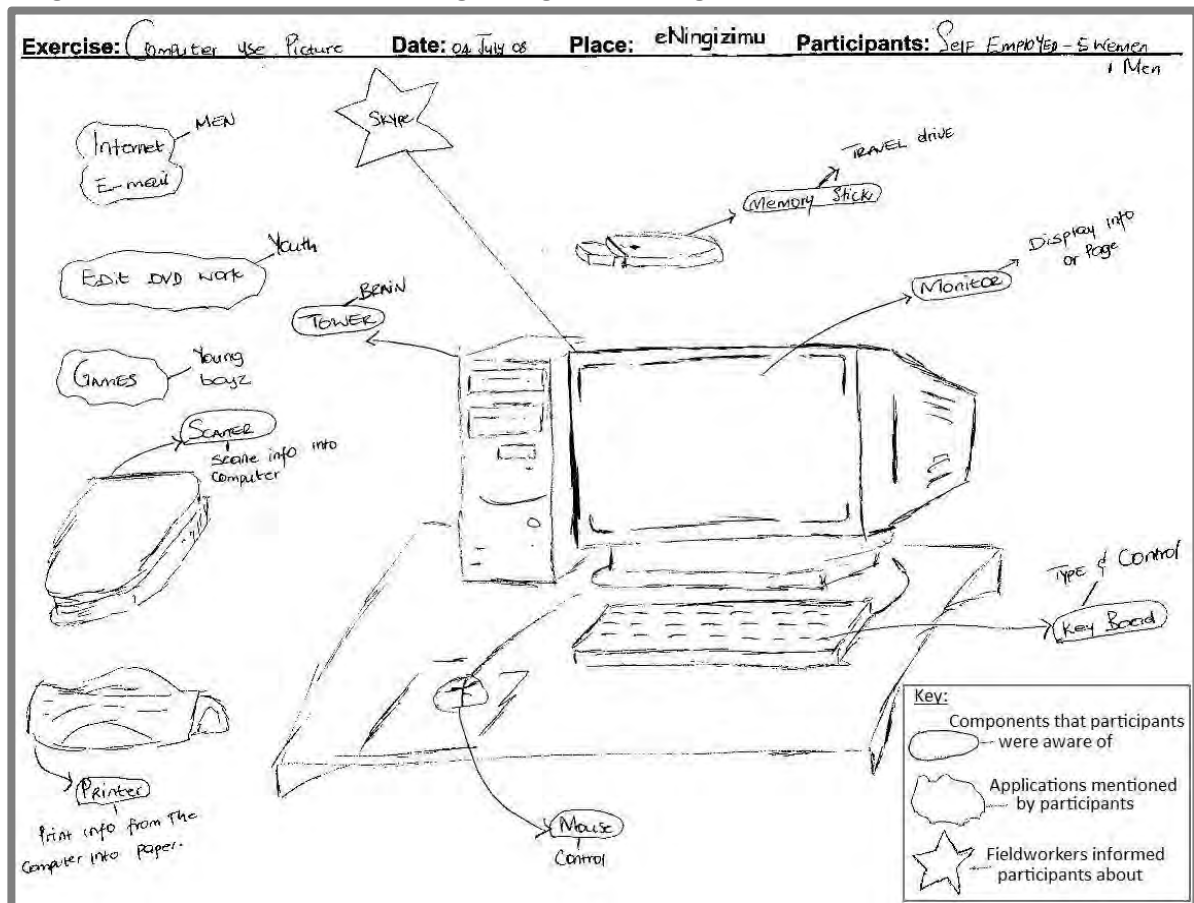 Exercise: Computer use Picture Date: 04 July 08 Place: eNingizimu Participants: Self Employed - 5 Wemen
1 Men
MEN
Internet
E-mail
Skype
TRAVEL drive
Memory Stick
Youth
Edit DVD work
Display info
or Page
Monitor
BRAIN
TOWER
Young
boyz
GAMES
Scaner
scane info into
computer
Type & Control
Key Board
Printer
Print info from The
Computer into paper.
Mouse
Control
Key:
Components that participants
were aware of
Applications mentioned
by participants
Fieldworkers informed
participants about